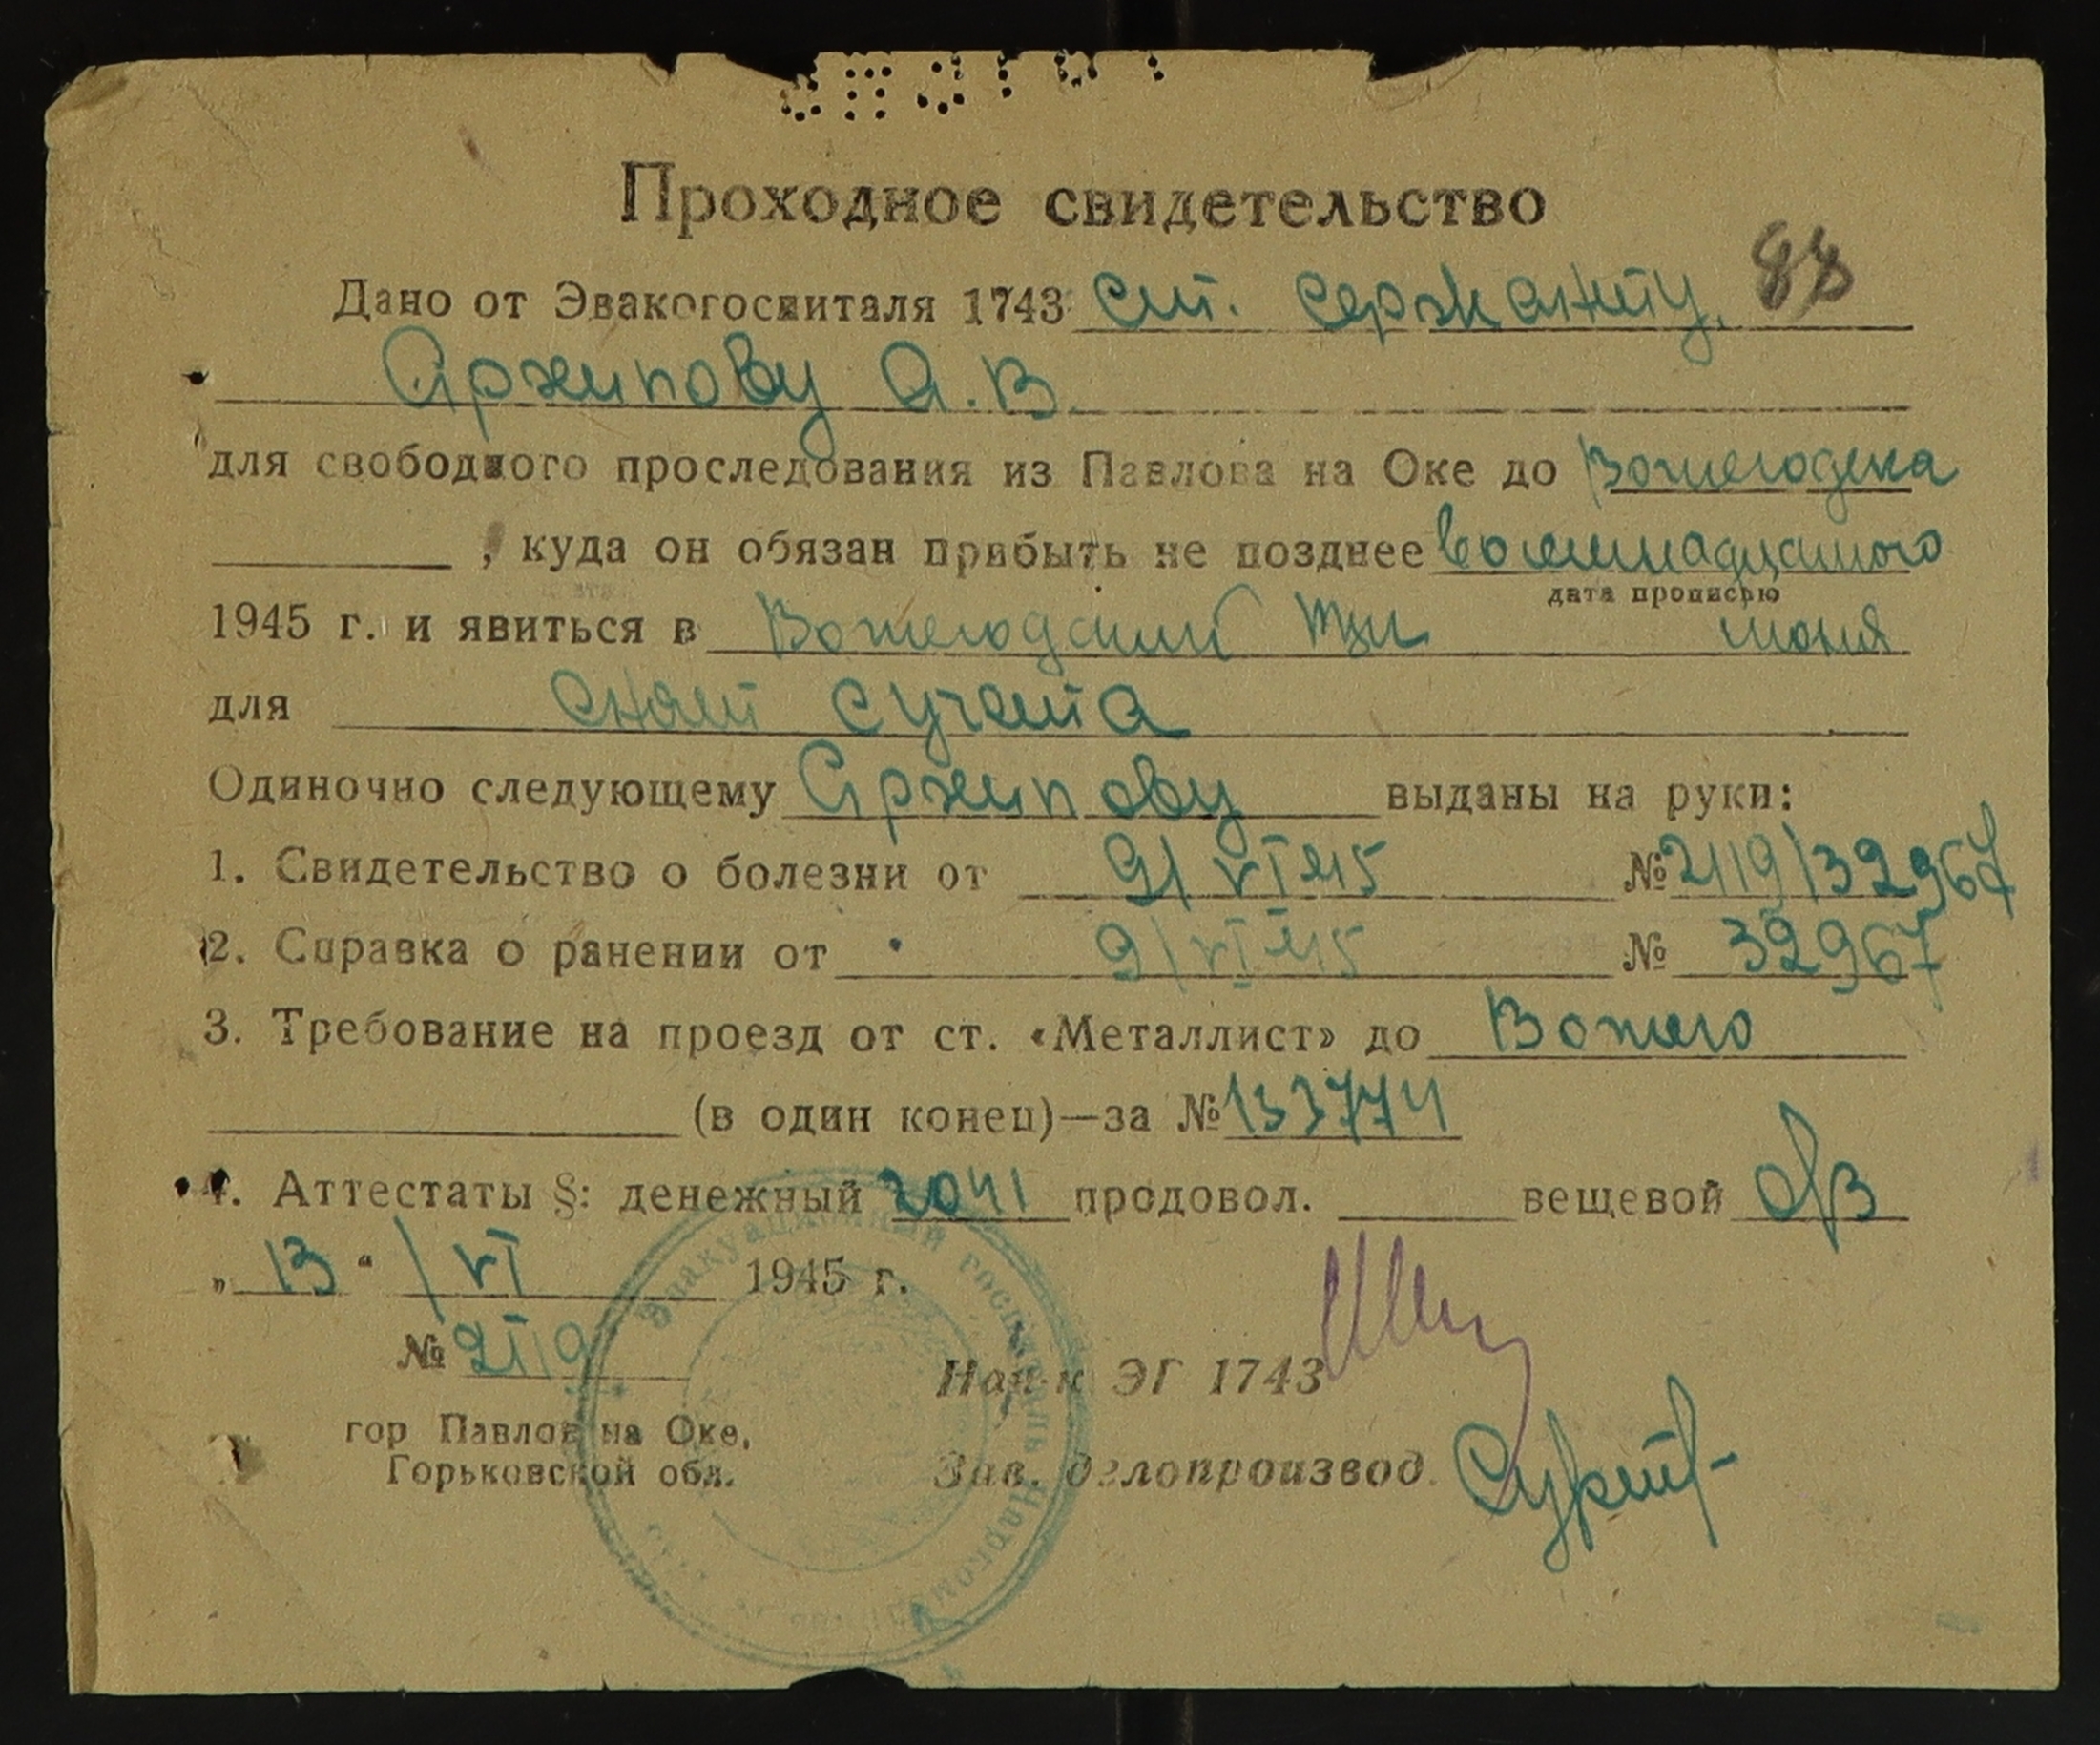 Проходное свидетельство
Дано от Эвакогоспиталя 1743 ст. сержанту. 88
Архипову А.В.
для свободного проследования из Павлова на Оке до Вожегодска
, куда он обязан прибыть не позднее восемнадцатого
дата прописью
1945 г. и явиться в Вожегодский июня
для снят сучета
Одиночно следующему Архипову выданы на руки:
1. Свидетельство о болезни от 9/VI 45 № 2119/32967
2. Справка о ранении от 9/VI 45 № 32967
3. Требование на проезд от ст. «Металлист» до Вожего
(в один конец)—за № 133774
4. Аттестаты §: денежный 2041 продовол. вещевой
„13“ / VI 1945 г.
№ 2119
Нач-к ЭГ 1743
гор Павлов на Оке,
Горьковской обл.
Зав. делопроизвод.
Эвакуационный госпиталь Нарком